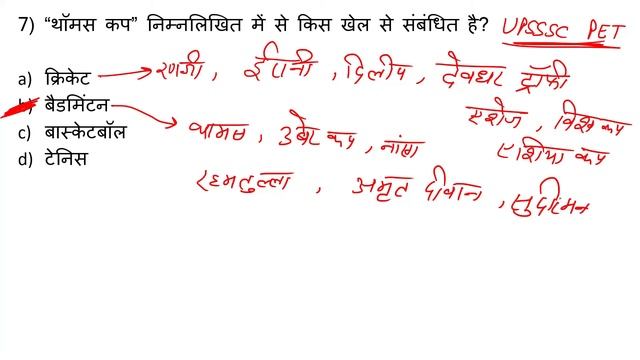 7) “थॉमस कप” निम्नलिखित में से किस खेल से संबंधित है? UPSSSC PET
a) क्रिकेट → रणजी, ईरानी, दिलीप, देवधर ट्रॉफी
एशेज, विश्व कप
एशिया कप
b) बैडमिंटन → थामस, उबेर कप, नांगा
रहमतुल्ला, अमृत दीवान, सुदीरमन
c) बास्केटबॉल
d) टेनिस